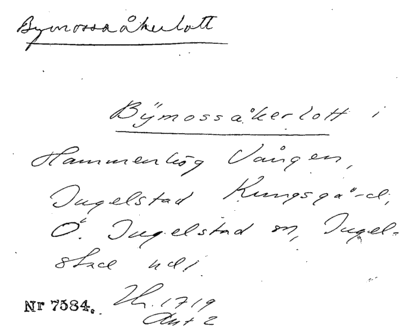 Bymossaåkerlott
Bÿmossåkerlott i
Hammenhög Vången,
Ingelstad Kungsgård,
Ö. Ingelstad sn, Ingel-
stad hd.
Nr 7584. 1719
Akt 2